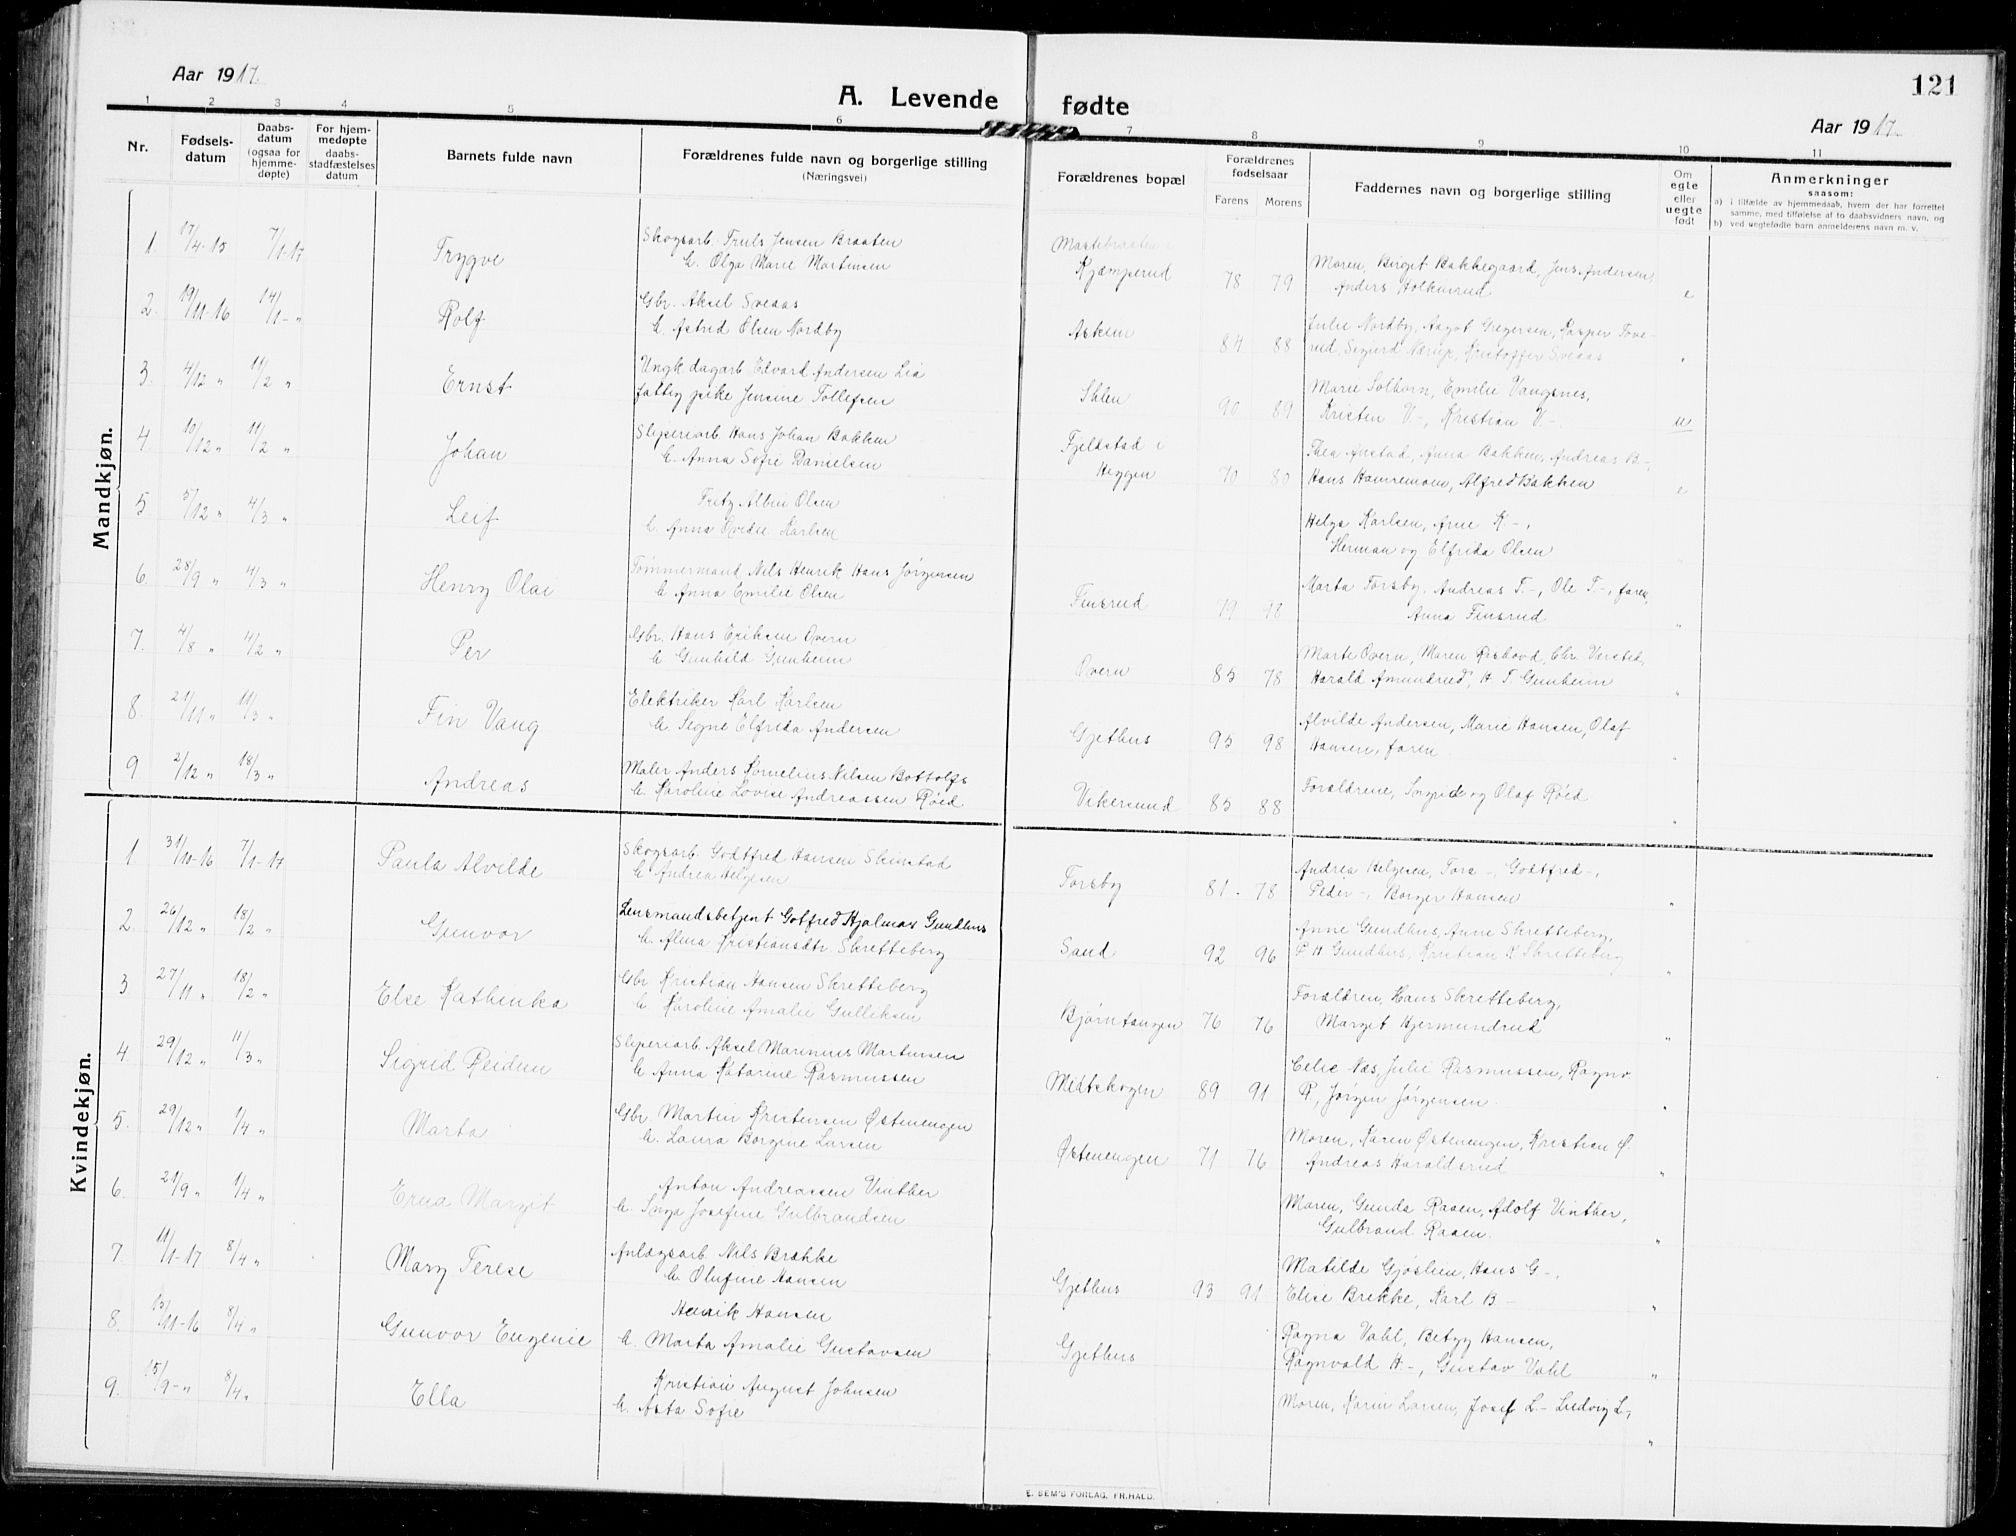 Aar 1917.
A. Levende fødte
121
Aar 1917.
1 2 3 4 5 6 7 8 9 10 11
Nr.
Fødsels-
datum
Daabs-
datum
(ogsaa for
hjemme-
døpte)
For hjem-
medøpte
daabs-
stadfæstelses
datum
Barnets fulde navn
Forældrenes fulde navn og borgerlige stilling
(Næringsvei)
Forældrenes bopæl
Forældrenes
fødselsaar
Farens Morens
Faddernes navn og borgerlige stilling
Om
egte
eller
uegte
født
Anmerkninger
saasom:
a) i tilfælde av hjemmedaab, hvem der har forrettet
samme, med tilføielse af to daabsvidners navn, og
b) ved uegtefødte barn anmelderens navn m. v.
Mandkjøn.
1. 17/4-15 7/1-17 Trygve Skogsarb. Truls Jensen Braaten Mastebraaten i Moren, Birget Bakkegaard, Jens Andersen,
H. Olga Marie Martinsen Kjæmperud 78 79 Anders Holkerud e
2. 19/11-16 14/1-" Rolf Gbr. Aksel Sveaas Asken 84 88 Julie Nordby, Aagot Gregersen, Kasper Tove-
H. Astrid Olsen Nordby rud, Sigurd Nærup, Kristoffer Sveaas "
3. 4/12 " 11/2 " Ernst Ungk dagarb Edvard Andersen Lia Marie Solhorn, Emilie Vangsnes,
fattig pike Jensine Tollefsen 90 89 Kristen V-, Kristian V-. u
4 10/12 " 11/2 " Johan Sliperiarb Hans Johan Bakken Fjeldstad i Thea Anstad, Anna Bakken, Andreas B-,
H. Anna Sofie Danielsen Heggen 70 80 Hans Hamremoen, Alfred Bakken e
5 5/12 " 4/3 " Leif Fritz Albin Olsen Helga Karlsen, Arne K-,
H. Anna Karlsen Herman og Elfrida Olsen "
6. 28/9 " 4/3 " Henry Olai Tømmermand Nils Henrik Hans Jørgensen Marta Forsby, Andreas F-, Ole F-, faren,
H. Anna Emilie Olsen Finsrud 79 98 Anna Finsrud "
7. 4/8 " 4/2 " Per Gbr. Hans Eriksen Overn Marte Overn, Maren Kashovd, Chr. Værsted,
H. Gunhild Gunheim Overn 85 78 Harald Amundrud, H. T. Gunheim "
8. 21/11 " 11/3 " Fin Vang Elektriker Karl Karlsen Alvilde Andersen, Marie Hansen, Olaf
H. Signe Elfrida Andersen Gjethus 95 98 Hansen, faren "
9 2/12 " 18/3 " Andreas Maler Anders Kornelius Nilsen Bottolfs Forældrene, Ingrid og Olaf Røed
H. Karoline Lovise Andreassen Røed Vikersund 85 88 "
Kvindekjøn.
1 31/10-16 7/1-17 Paula Alvilde Skogsarb. Godtfred Hansen Skinstad Andrea Helgesen, Tora -, Godtfred -,
H. Andrea Helgesen Forsby 81. 78 Peder -, Borger Hansen "
2. 26/12 " 18/2 " Gunvor Lensmandsbetjent Gotfred Hjalmar Gundhus Anne Gundhus, Anne Skretteberg,
H. Alma Kristiansdtr Skretteberg Sand 92 96 P. H Gundhus, Kristian K Skretteberg "
3 27/11 " 18/2 " Else Kathinka Gbr Kristian Hansen Skretteberg Forældren, Hans Skretteberg,
H. Karoline Amalie Gulliksen Bjørntangen 76 76 Margit Hjermundrud "
4. 29/12 " 11/3 " Sigrid Reidun Sliperiarb. Aksel Marinius Martinsen Celie Næs, Julie Rasmussen, Ragnv.
H. Anna Katarine Rasmussen Midtskogen 89 91 R, Jørgen Jørgensen. "
5. 29/12 " 1/4 " Marta Gbr. Martin Kristensen Østenengen Moren, Karen Østenengen, Kristian Ø.
H. Laura Borgine Larsen Østenengen 71 76 Andreas Haraldsrud "
6. 21/9 " 1/4 " Erna Margit Anton Andreassen Vinther Moren, Gunda Raaen, Adolf Vinther,
H. Inga Josefine Gulbrandsen Gulbrand Raaen. "
7 11/1-17 8/4 " Mary Terese Anlægsarb. Nils Brække Matilde Gjøslien, Hans G-,
H. Olufine Hansen Gjethus 93 91 Elise Brekke, Karl B- "
8. 15/11-16 8/4 " Gunvor Eugenie Henrik Hansen Ragna Vahl, Betzy Hansen,
H. Marta Amalie Gustavsen Gjethus Ragnvald H-, Gustav Vahl "
9. 15/9-" 8/4 " Ella Kristian August Johnsen Moren, Karin Larsen, Josef L- Ludvig L-,
H. Asta Sofie "
E. SEM'S FORLAG, FR.HALD.